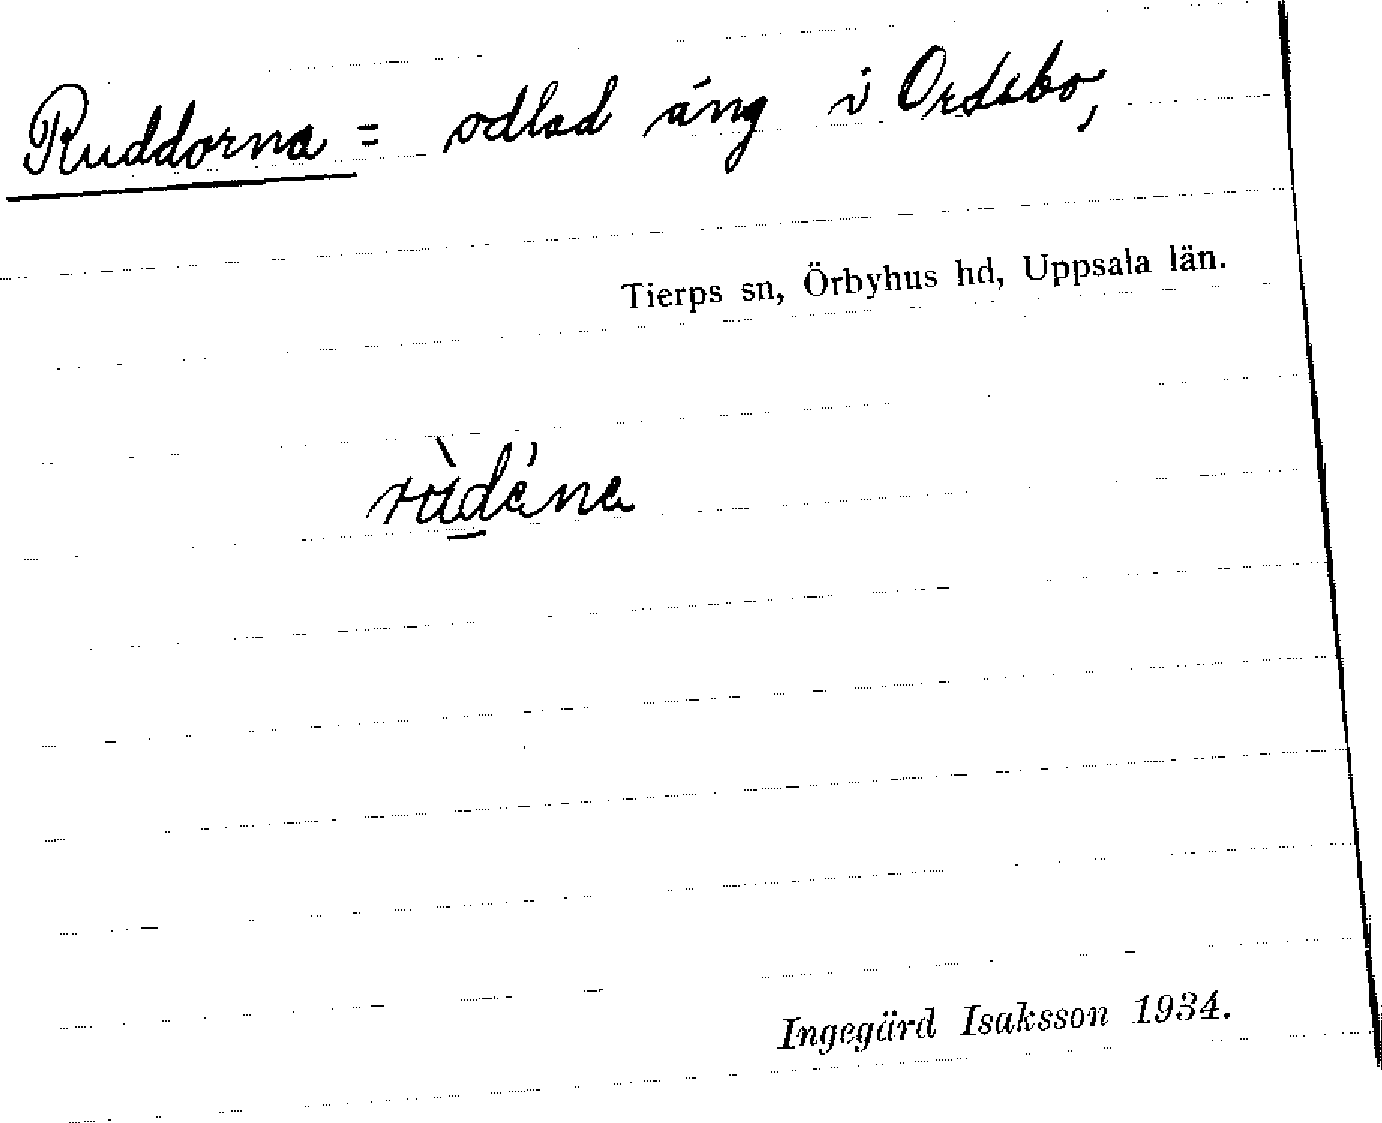 Ruddorna = odlad äng i Ordsbo,
Tierps sn, Örbyhus hd, Uppsala län.
rùdéna
Ingegärd Isaksson 1934.